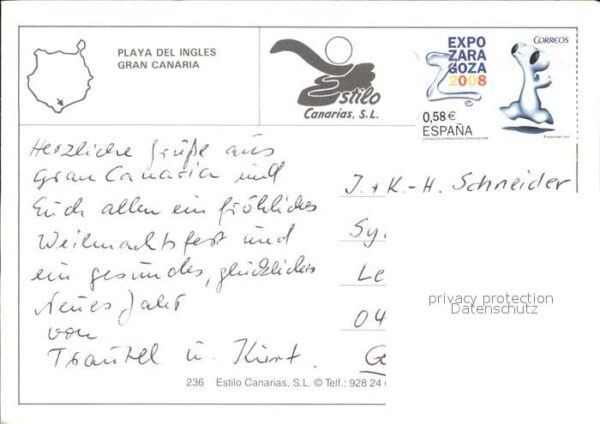 PLAYA DEL INGLES
GRAN CANARIA
Estilo
Canarias, S.L.
EXPO
ZARA
GOZA
2008
0,58 €
ESPAÑA
CORREOS
Herzliche Grüße aus
Gran Canaria und
Euch allen ein fröhliches
Weihnachtsfest und
ein gesundes, glückliches
Neues Jahr
von
Traudel u. Kurt.
J. + K.-H. Schneider
Sy
Le
04
G
privacy protection
Datenschutz
236 Estilo Canarias, S.L. © Telf.: 928 24